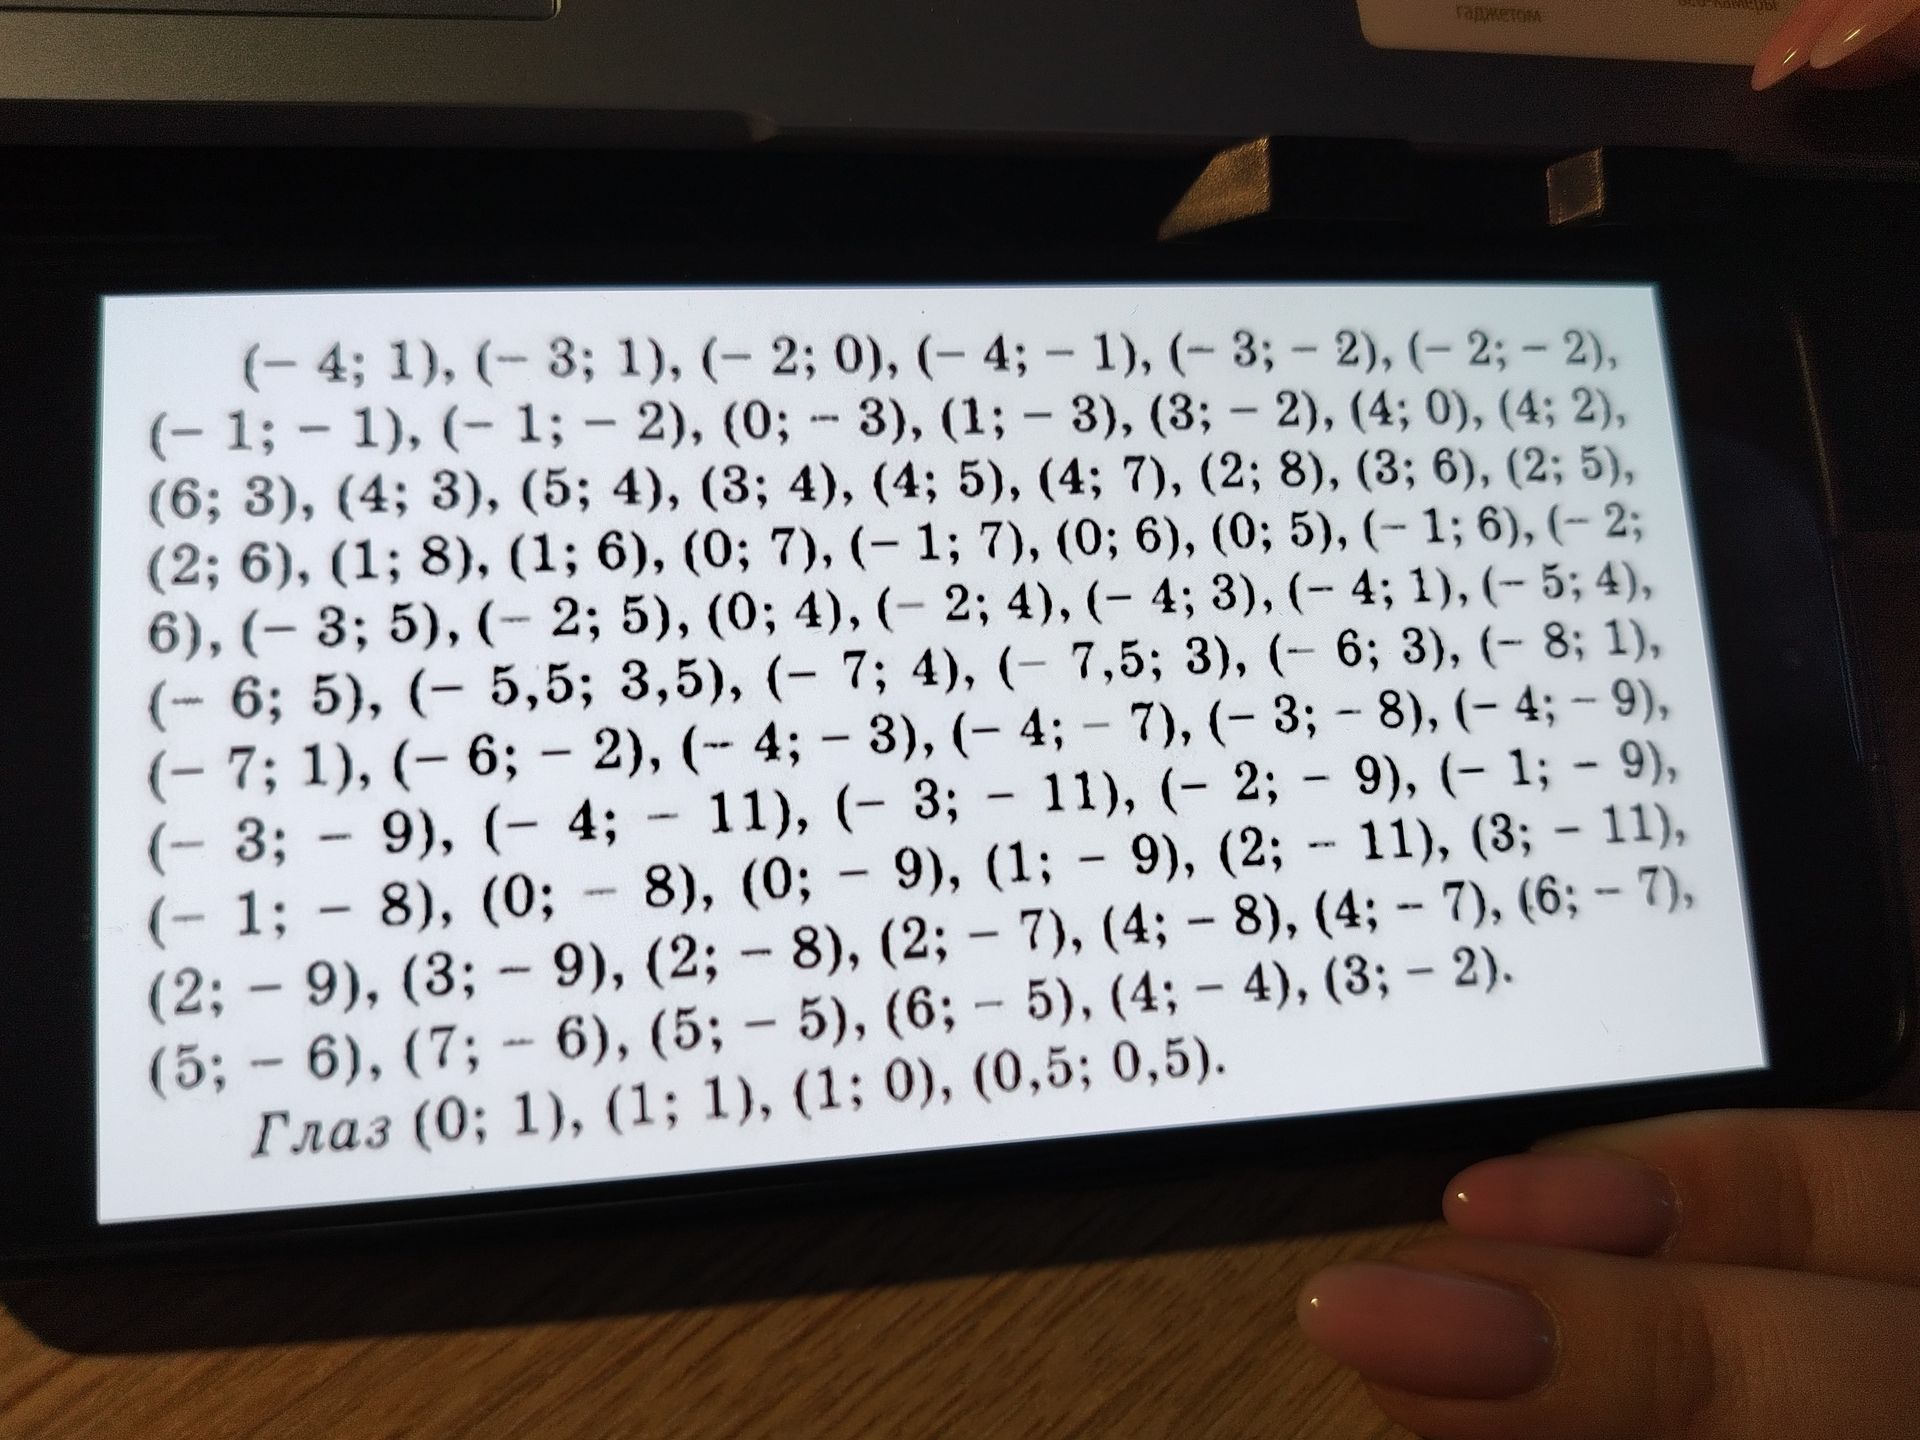 гаджетом
веб-камеры
(– 4; 1), (– 3; 1), (– 2; 0), (– 4; – 1), (– 3; – 2), (– 2; – 2),
(– 1; – 1), (– 1; – 2), (0; – 3), (1; – 3), (3; – 2), (4; 0), (4; 2),
(6; 3), (4; 3), (5; 4), (3; 4), (4; 5), (4; 7), (2; 8), (3; 6), (2; 5),
(2; 6), (1; 8), (1; 6), (0; 7), (– 1; 7), (0; 6), (0; 5), (– 1; 6), (– 2;
6), (– 3; 5), (– 2; 5), (0; 4), (– 2; 4), (– 4; 3), (– 4; 1), (– 5; 4),
(– 6; 5), (– 5,5; 3,5), (– 7; 4), (– 7,5; 3), (– 6; 3), (– 8; 1),
(– 7; 1), (– 6; – 2), (– 4; – 3), (– 4; – 7), (– 3; – 8), (– 4; – 9),
(– 3; – 9), (– 4; – 11), (– 3; – 11), (– 2; – 9), (– 1; – 9),
(– 1; – 8), (0; – 8), (0; – 9), (1; – 9), (2; – 11), (3; – 11),
(2; – 9), (3; – 9), (2; – 8), (2; – 7), (4; – 8), (4; – 7), (6; – 7),
(5; – 6), (7; – 6), (5; – 5), (6; – 5), (4; – 4), (3; – 2).
Глаз (0; 1), (1; 1), (1; 0), (0,5; 0,5).